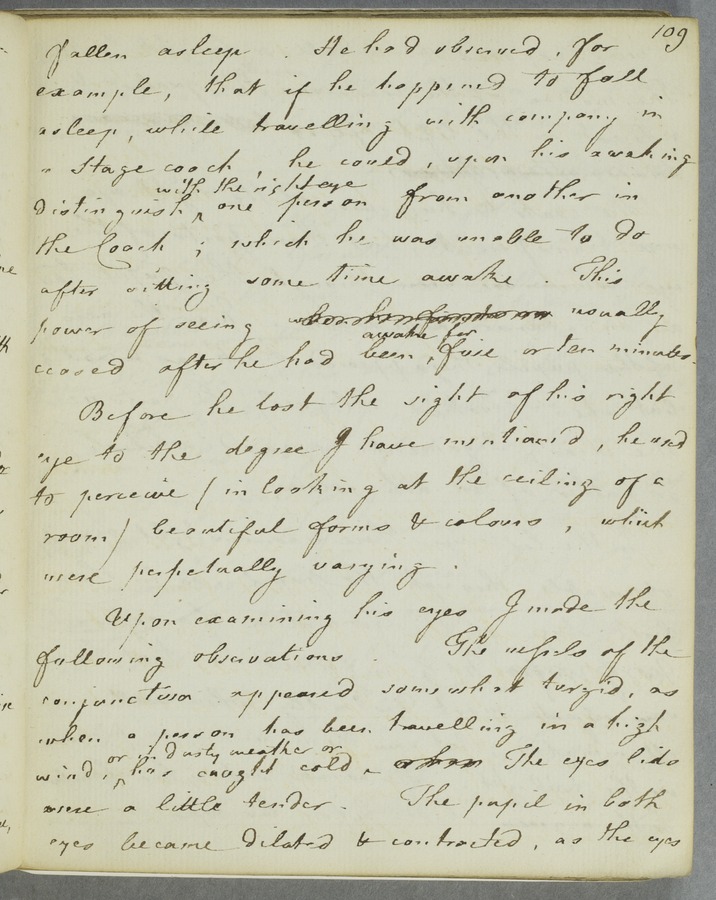 109
fallen asleep. He had observed, for
example, that if he happened to fall
asleep, while travelling with company in
a Stage coach, he could, upon his awaking
with the right eye
distinguish ^ one person from another in
the Coach; which he was unable to do
after sitting some time awake. This
power of seeing usually
awake for
ceased after he had been ^ five or ten minutes.
Before he lost the sight of his right
eye to the degree I have mentioned, he used
to perceive (in looking at the ceiling of a
room) beautiful forms & colours, which
were perpetually varying.
Upon examining his eyes I made the
following observations. The vessels of the
conjunctiva appeared somewhat turgid, as
when a person has been travelling in a high
or in dusty weather or
wind, ^ has caught cold. when The eyes lids
were a little tender. The pupil in both
eyes became dilated & contracted, as the eyes